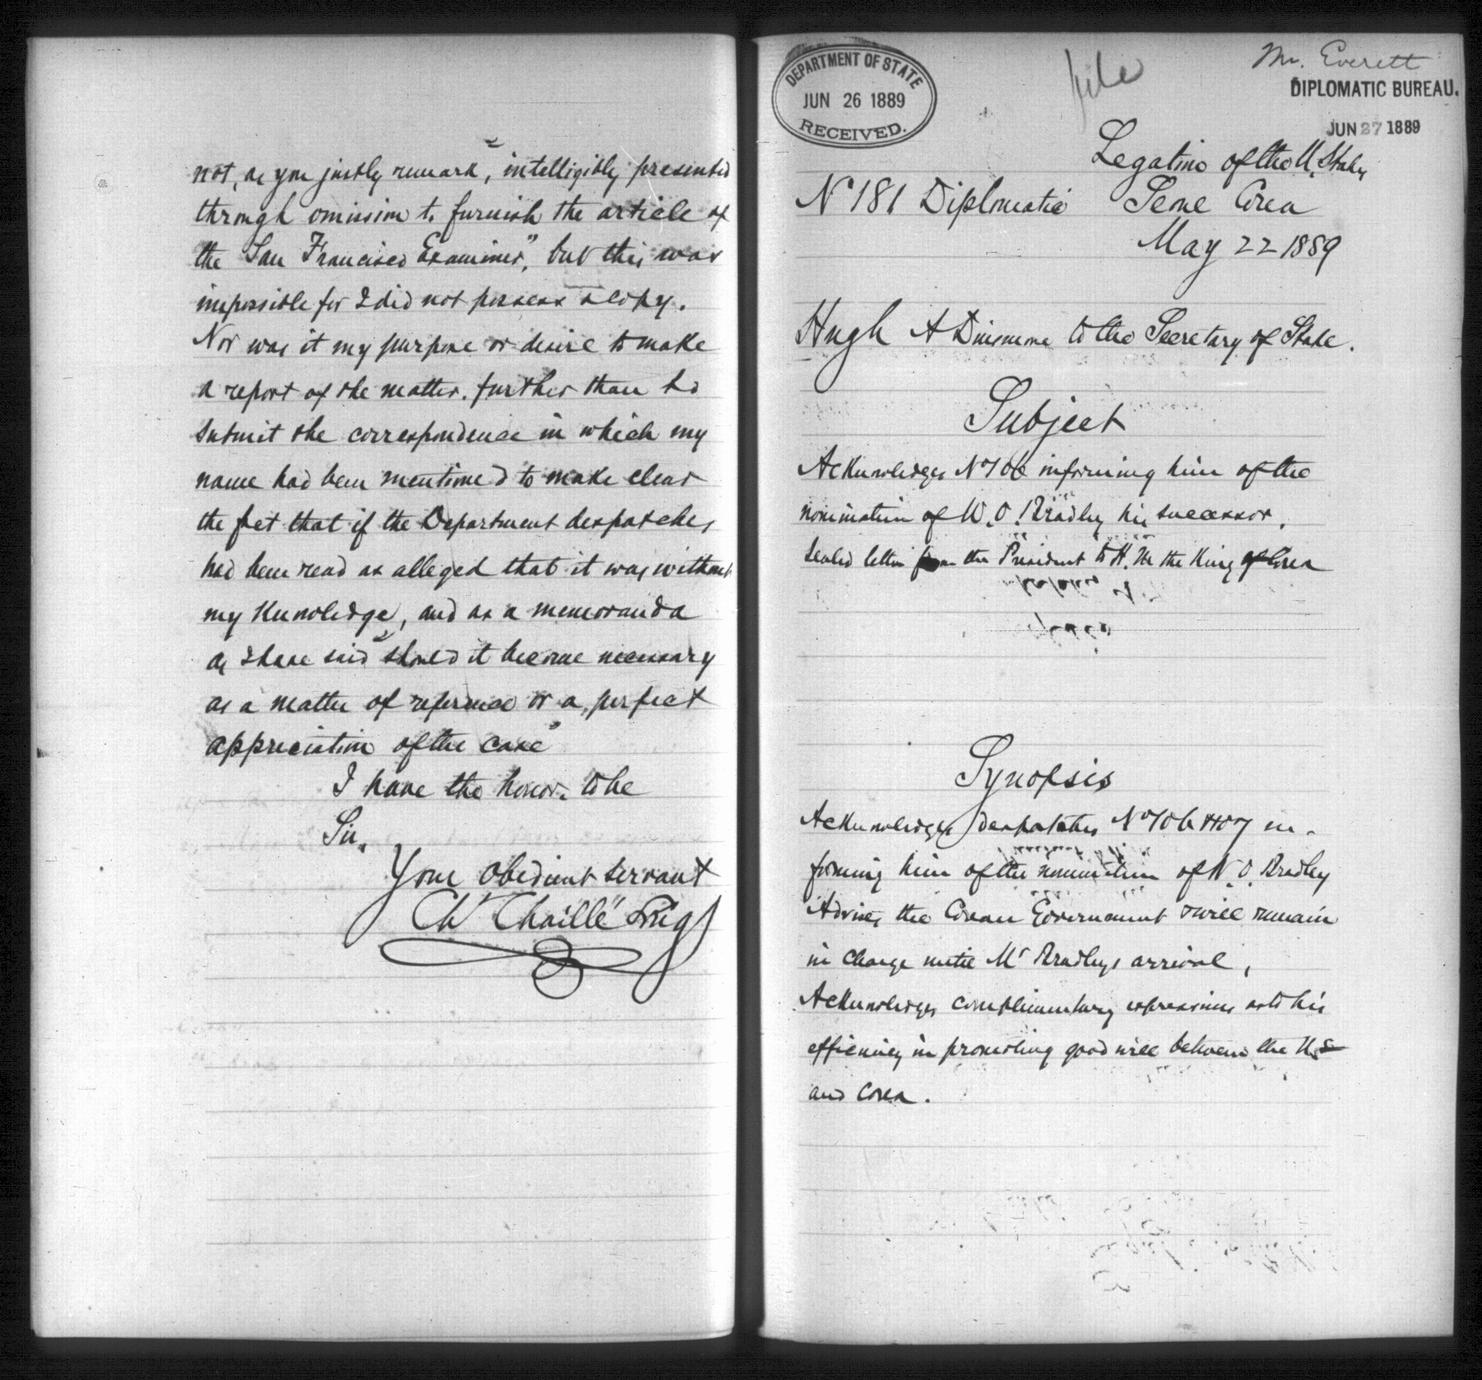 not, as you justly remark", intelligibly presented
through omission to furnish the article of
the "San Francisco Examiner", but this was
impossible for I did not possess a copy.
Nor was it my purpose or desire to make
a report of the matter. further than to
submit the correspondence in which my
name had been mentioned to make clear
the fact that if the Department despatches
had been read as alleged that it was without
my Knowledge, and as a memoranda
as I have said "should it become necessary
as a matter of reference or a perfect
appreciation of the case"
I have the honor to be
Sir,
Your obedient servant
Ch Chaillé Long
DEPARTMENT OF STATE
JUN 26 1889
RECEIVED.
file
Mr. Everett
DIPLOMATIC BUREAU.
JUN 27 1889
Legation of the U. States
No 181 Diplomatic Seoul Corea
May 22 1889
Hugh A Dinsmore to the Secretary of State.
Subject
Acknowledges No 106 informing him of the
nomination of W. O. Bradley his successor.
Sealed letter from the President to H. M the King of Corea
Synopsis
Acknowledges despatches No 106 & 107 in-
forming him of the nomination of W. O. Bradley
Advises the Corean Government I will remain
in charge until Mr Bradleys arrival,
Acknowledges complimentary expressions as to his
efficiency in promoting good will between the U.S
and Corea.